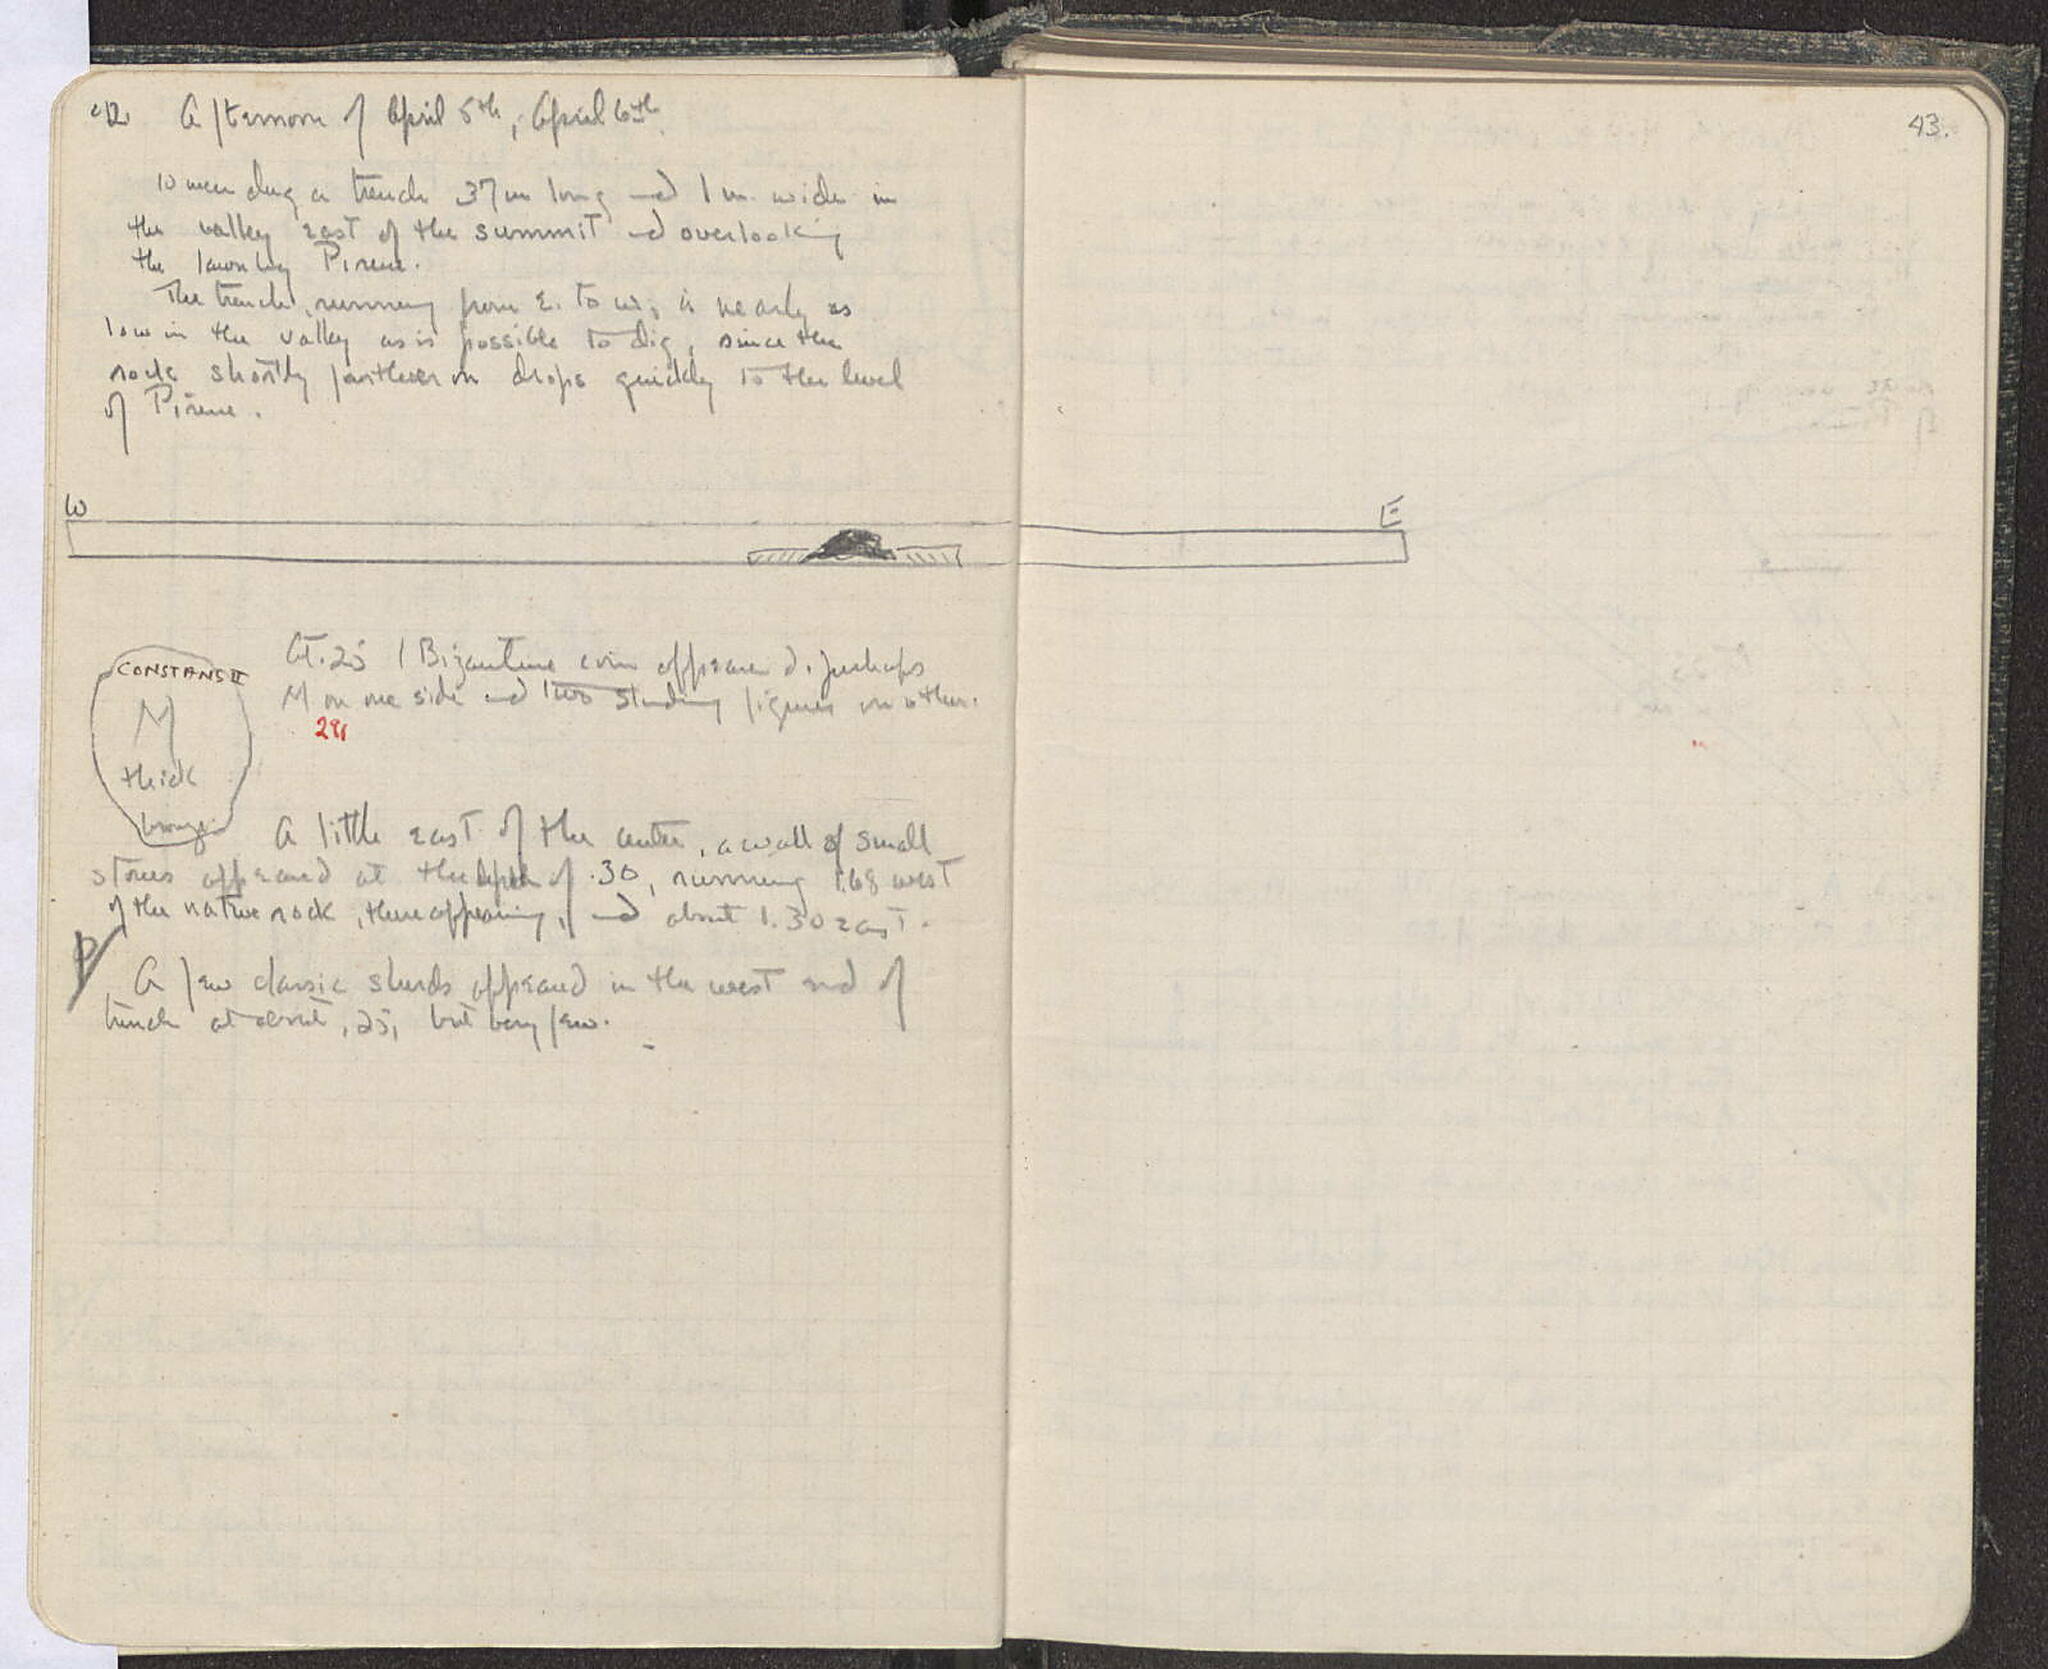 42 Afternoon of April 5th, April 6th.
10 men dug a trench 37m long and 1 m. wide in
the valley east of the summit and overlooking
the Pirene.
The trench, running from E. to W., is nearly as
low in the valley as is possible to dig, since the
rock shortly farther on drops quickly to the level
of Pirene.
W
E
At .25 1 Bizantine coin appeared. perhaps
M on one side and two standing figures on other.
291
CONSTANS II
M
thick
bronze
A little east of the center, a wall of small
stones appeared at the depth of .30, running 1.68 west
of the native rock, there appearing, and about 1.30 east.
P
A few classic sherds appeared in the west end of
trench at about .25, but very few.
43.